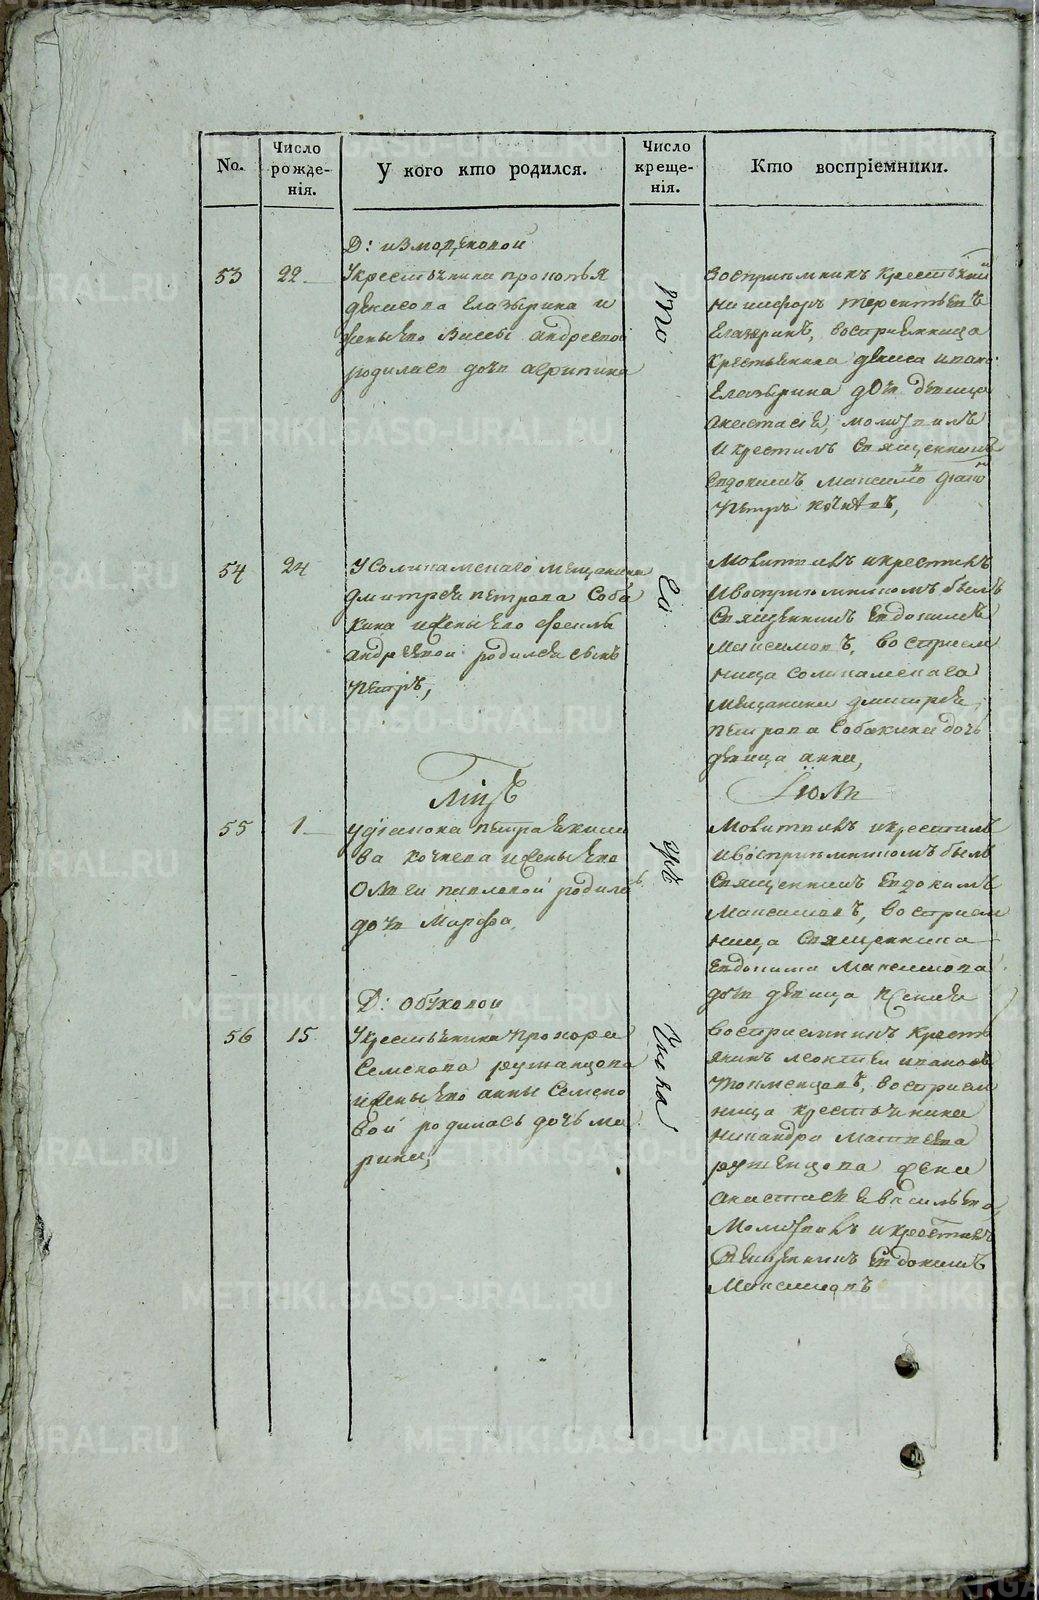 No.
Число рожде-
нія.
У кого кто родился.
Число креще-
нія.
Кто воспріемники.
Д: измоденовой
53 22
Укрестьянина прокопья
денисова Елазырина и
жены ево Андреевой
родилась дочь агрипина
того
Восприемникъ крестьянинъ
никифоръ терентьевъ
Елазыринъ, восприемница
крестьянина дениса ивано:
Елазырина дочь девица
анастасия, молитвилъ
икрестилъ священникъ
Евдокимъ максимо
петръ
54 24
Усоликамскаго мещанина
дмитрея петрова Соба
кина ижены ево
андреевой родился сынъ
петръ,
Молитвилъ икрестилъ
ивосприемникомъ былъ
Священникъ Евдокимъ
максимовъ, восприем
ница соликамскаго
мещанина дмитрея
петрова Собакина дочь
девица анна,
Июль
55 1
удиакона петра
кочнева ижены ево
Ольги павловой родилась
дочь Марфа,
Молитвилъ икрестилъ
ивосприемникомъ былъ
Священникъ Евдокимъ
Максимовъ, восприем
ница Священника
Евдокима Максимова
дочь девица
Д: обуховой
56 15
Укрестьянина прохора
Семенова
ижены ево анны Семено
вой родилась дочь ма
рина,
числа
Восприемникъ кресть
янинъ леонтей ивановъ
восприем
ница крестьянина
никандра матвеева
жена
анастасия васильева,
Молитвилъ икрестилъ
Священникъ Евдокимъ
Максимовъ
METRIKI.GASO-URAL.RU